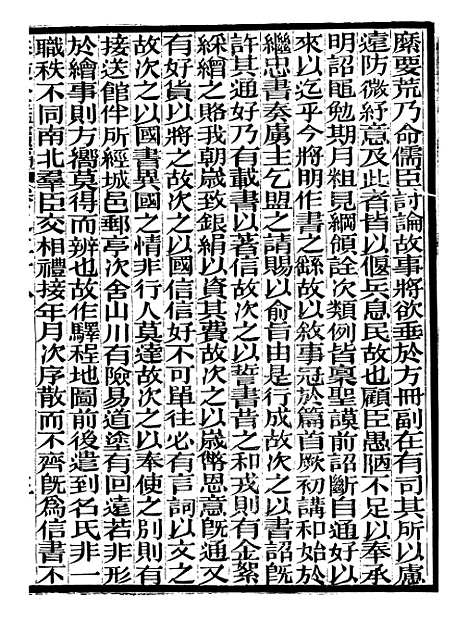 縻要荒乃命儒臣討論故事將欲垂於方冊副在有司其所以慮
遠防微紓意及此者皆以偃兵息民故也顧臣愚陋不足以奉承
明詔黽勉期月粗見綱領詮次類例皆稟聖謨前詔斷自通好以
來以迄乎今將明作書之繇故以敘事冠於篇首厥初講和始於
繼忠書奏虜主乞盟之請賜以俞旨由是行成故次之以書詔旣
許其通好乃有載書以著信故次之以誓書昔之和戎則有金絮
綵繒之賂我朝歲致銀絹以資其費故次之以歲幣恩意旣通又
有好貨以將之故次之以國信信好不可單往必有言詞以文之
故次之以國書異國之情非行人莫達故次之以奉使之別則有
接送館伴所經城邑郵亭次舍山川有險易道塗有回遠若非形
於繪事則方嚮莫得而辨也故作驛程地圖前後遣到名氏非一
職秩不同南北羣臣交相禮接年月次序散而不齊旣爲信書不